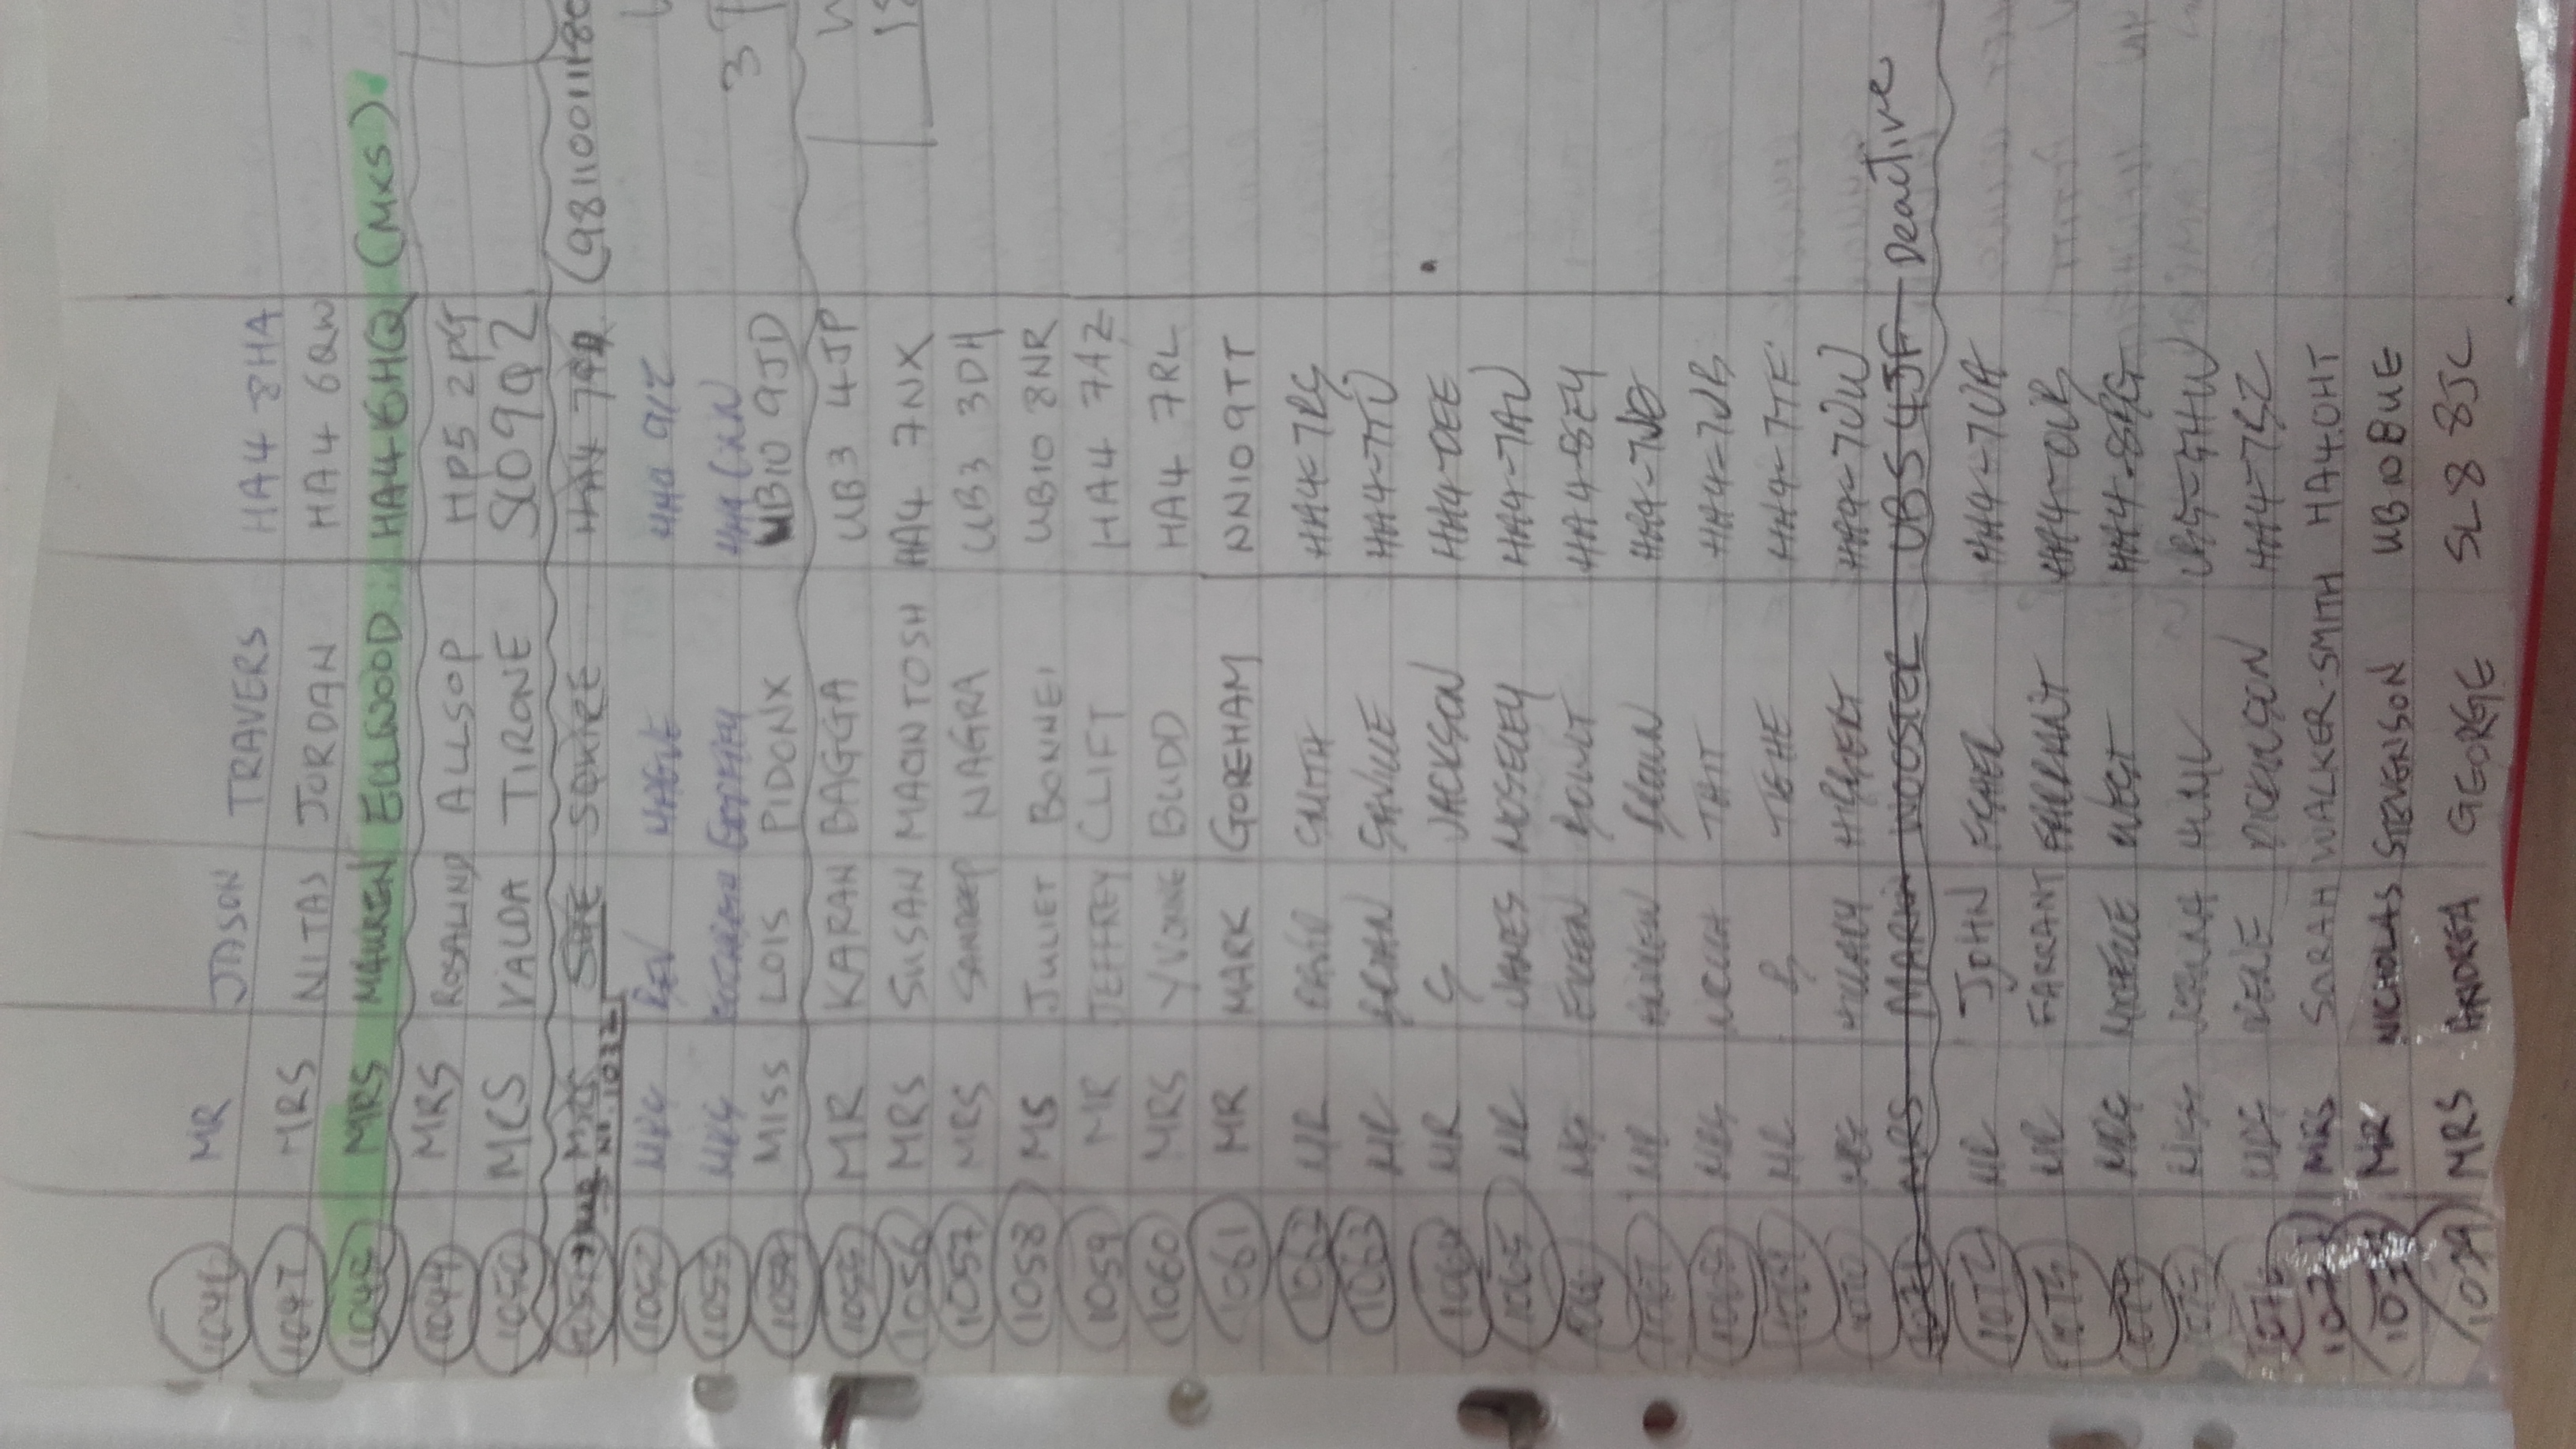 1046 MR JASON TRAVERS HA4 8HA
1047 MRS NITAS JORDAN HA4 6QW
1048 MRS MAUREN ELLWOOD HA4 6HQ (MKS)
1049 MRS ROSALIND ALLSOP HP5 2PG
1050 MRS VALDA TIRONE SL0 9QZ
MRS SUE SQUIRE HA4 (981100111180
NO. 1032
1052 MRS BEV HAGUE
1053 MRS
1054 MISS LOIS PIDONX UB10 9JD
1055 MR KARAN BAGGA UB3 4JP
1056 MRS SUSAN MACINTOSH HA4 7NX
1057 MRS SANDEEP NAGRA UB3 3DH
1058 MS JULIET BONNEI UB10 8NR
1059 MR JEFFREY CLIFT HA4 7AZ
1060 MRS YVONNE BUDD HA4 7RL
1061 MR MARK GOREHAM NN10 9TT
1062 MR DAVID SMITH HA4-7RS
1063 MR BRIAN SAVILLE HA4-7TU
1064 MR S JACKSON HA4-0EE
1065 MR JAMES MOSELEY HA4-7AU
1066 MS EILEEN BOWLT HA4-8EY
1067 MR ANDREW BROWN
1068 MRS TAIT HA4-7JB
1069 MR B TIGHE HA4-7TF
1070 MRS HILLARY HIBBERT HA4-7UW
1071 MRS WOOSTER UB5 4JF Deactive
1072 MR JOHN HA4-7UA
1073 MR FARRANT FARRANT
1074 MRS MICHELLE WEST HA4-8RG
1075 MISS UB5-5HW
1076 MRS IRENE DICKINSON HA4-7SZ
1077 MRS SARAH WALKER-SMITH HA4 0HT
1078 MR NICHOLAS STEVENSON UB10 8UE
1079 MRS ANDREA GEORGE SL8 8JL